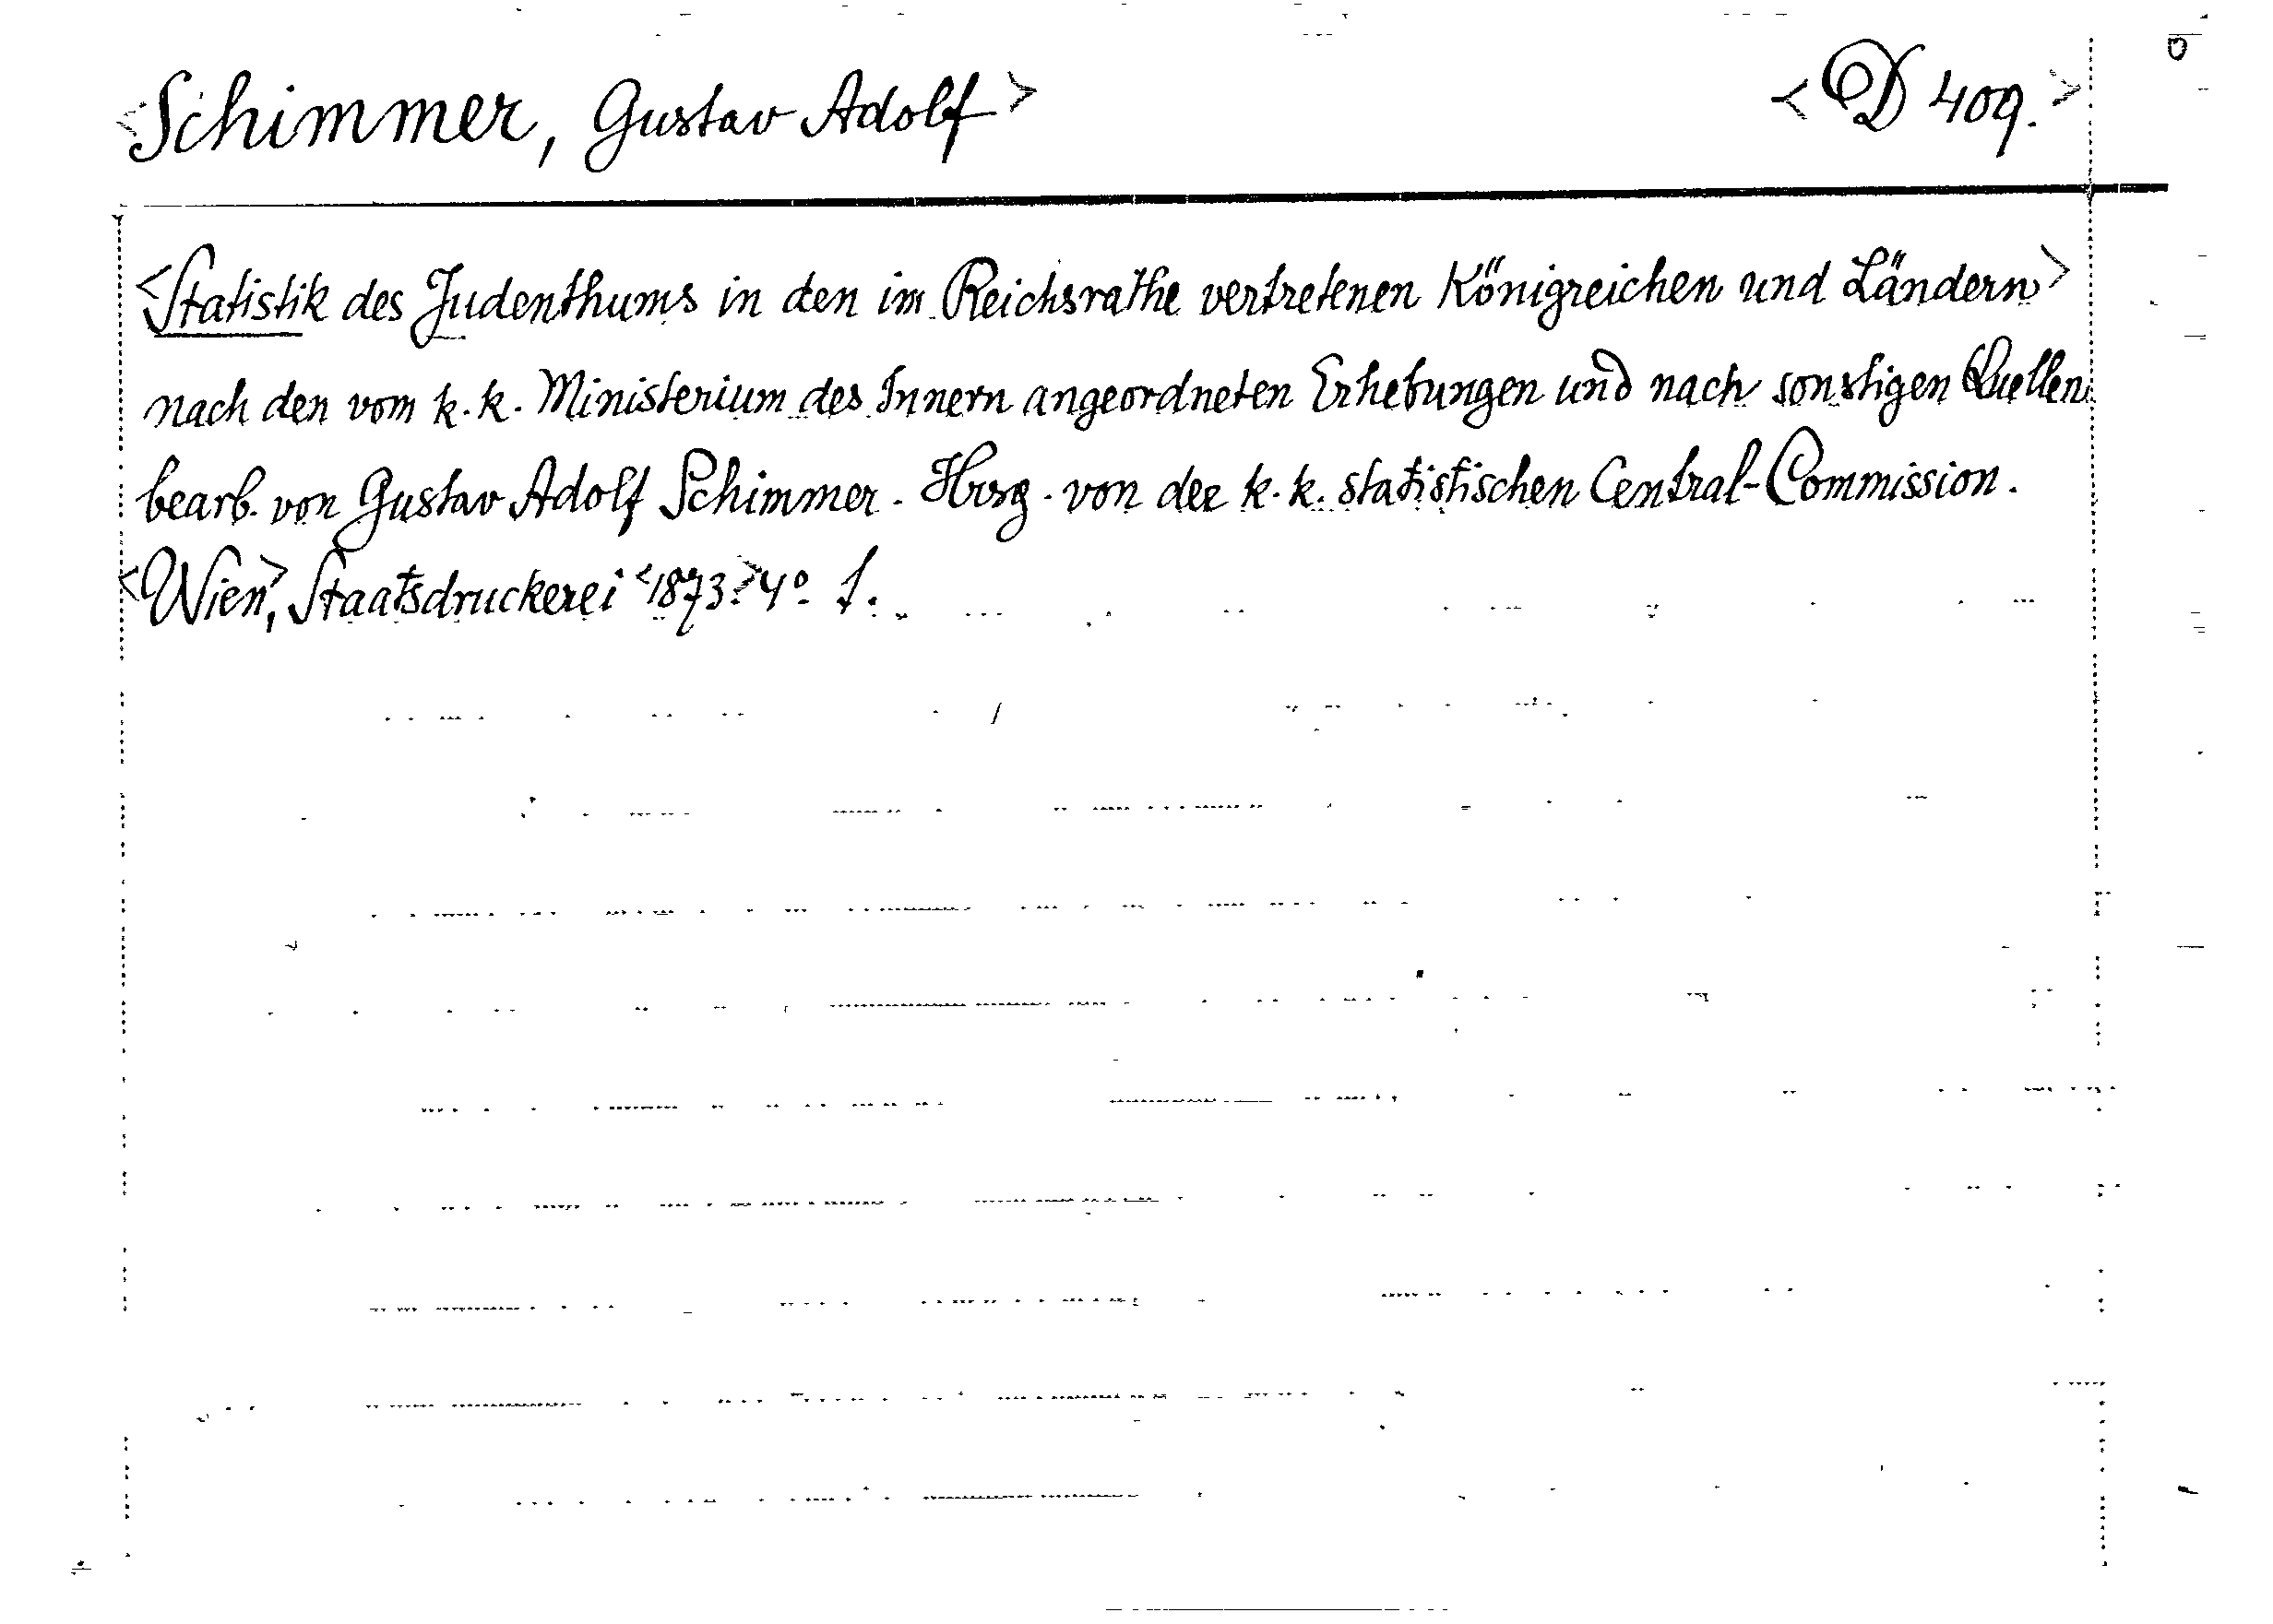 <Schimmer, Gustav Adolf> <D 409.>
<Statistik des Judenthums in den im Reichsrathe vertretenen Königreichen und Ländern>
nach den vom k. k. Ministerium des Innern angeordneten Erhebungen und nach sonstigen Quellen
bearb. von Gustav Adolf Schimmer. Hrsg. von der k. k. statistischen Central-Commission.
<Wien>, Staatsdruckerei <1873.> 4°.